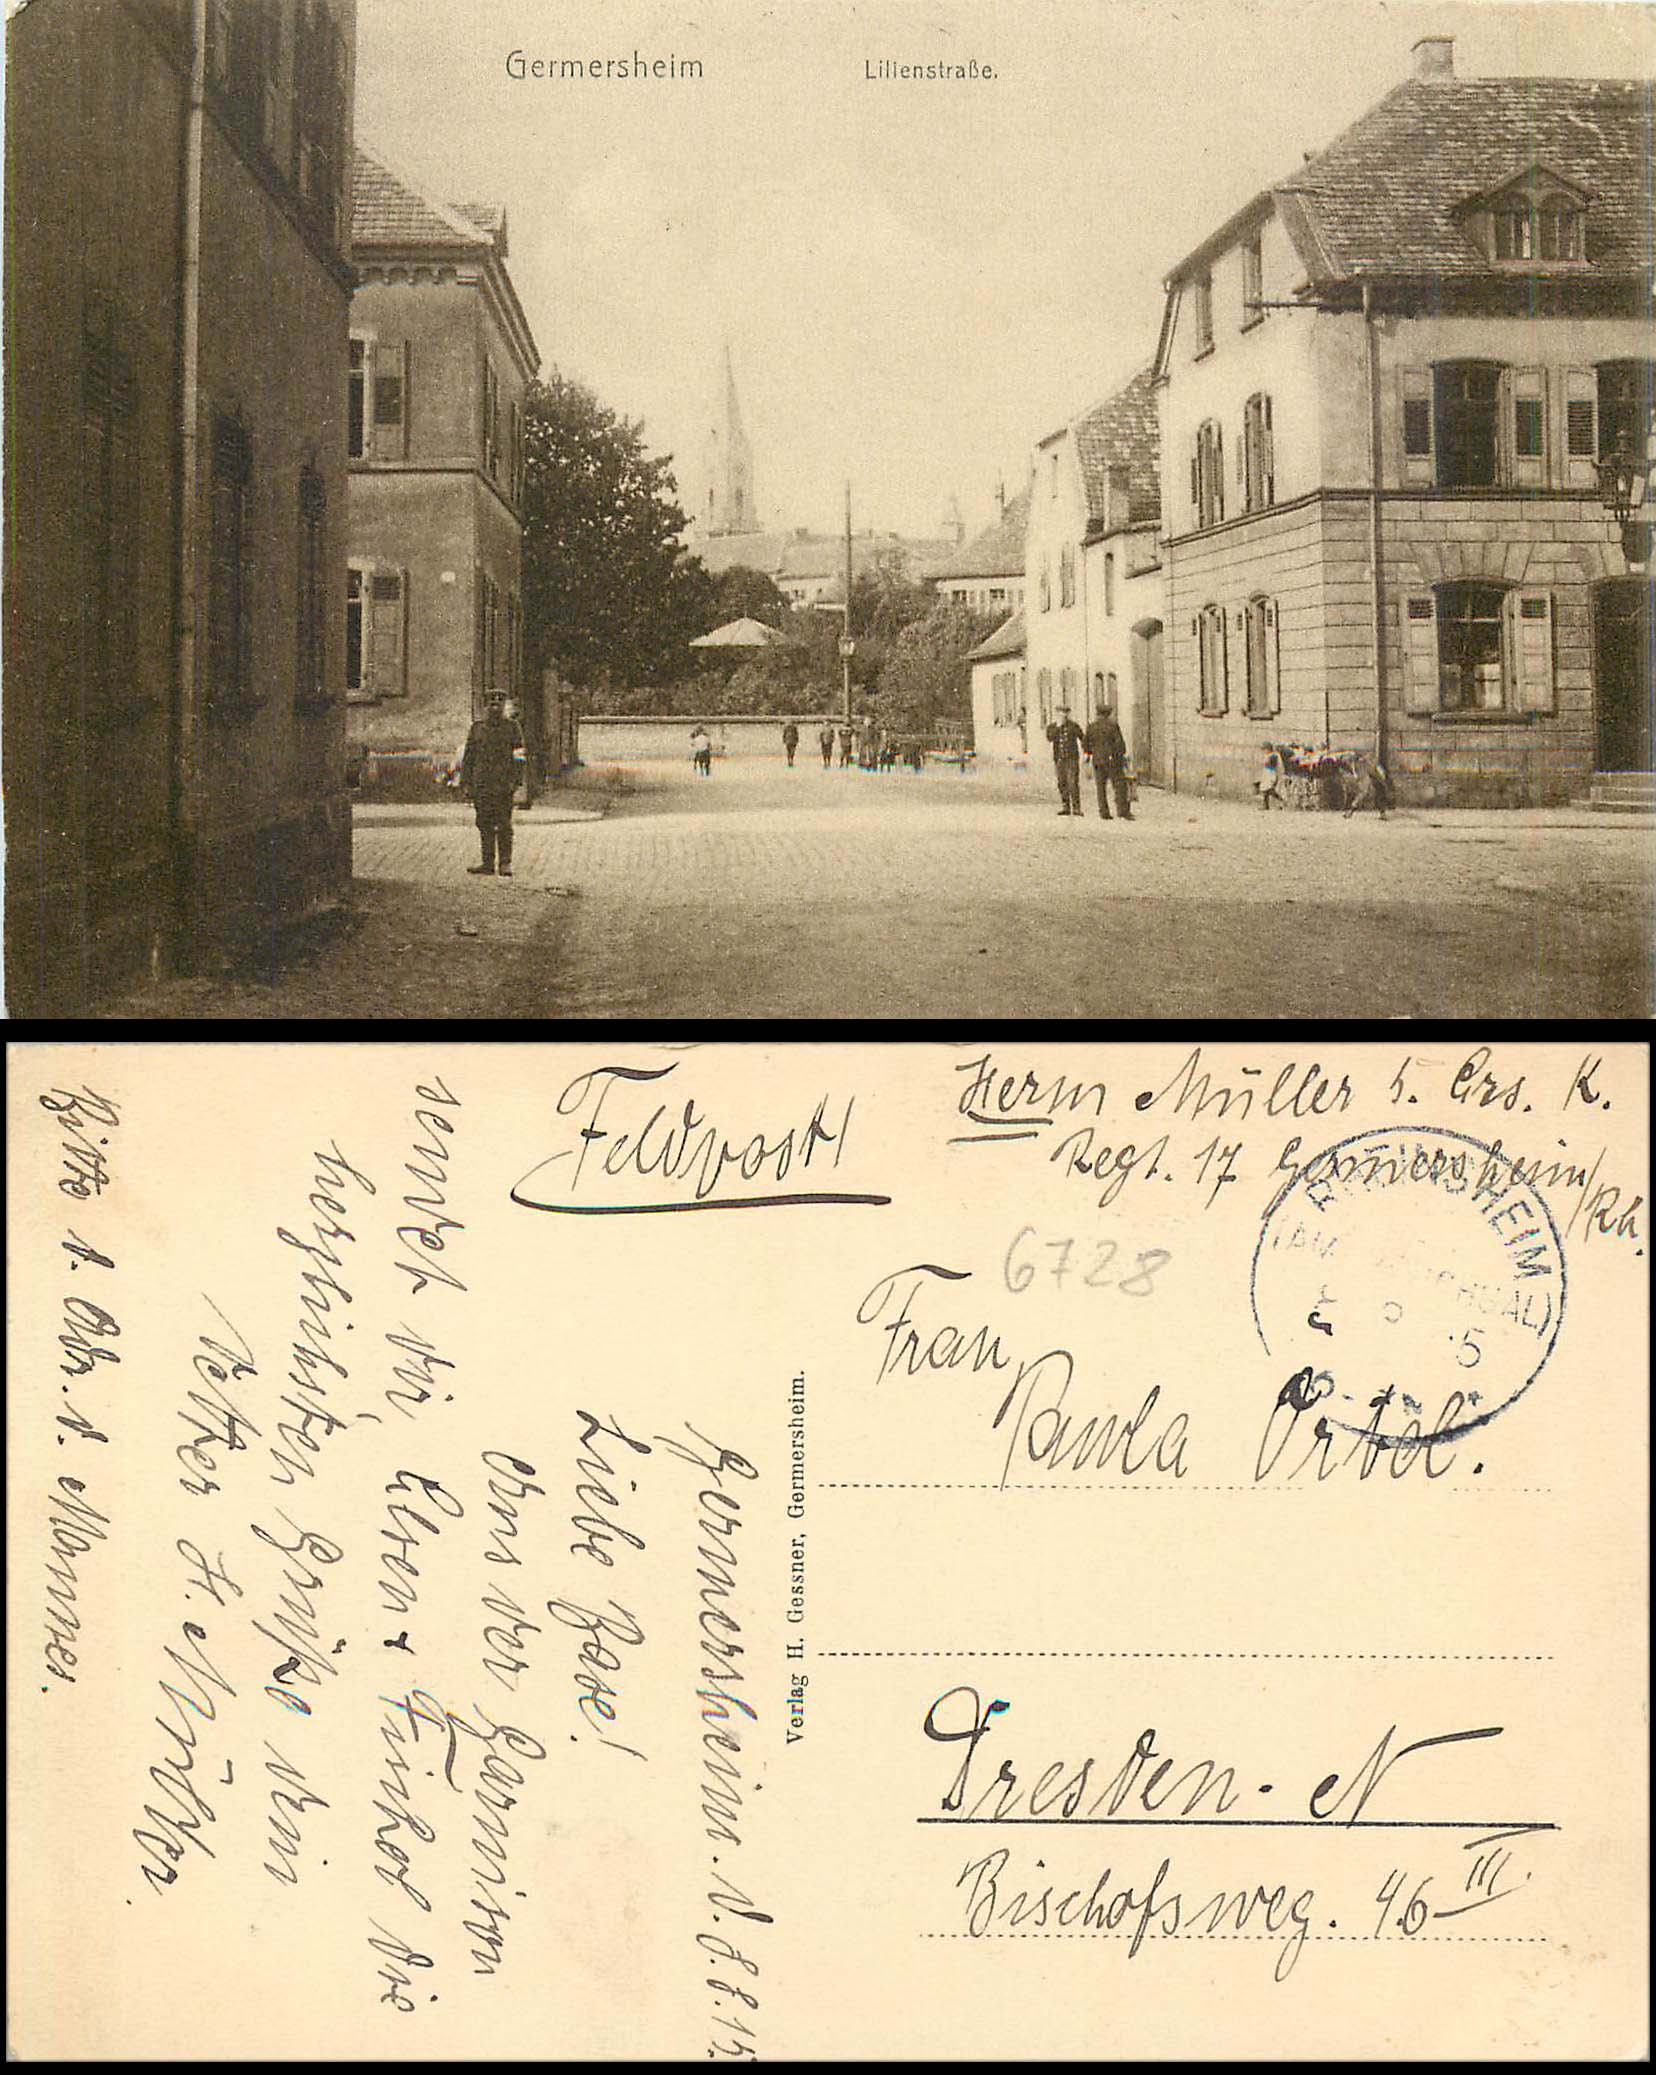 Germersheim Lilienstraße.
Feldpost!
Herm Müller 5. Ers. K.
Regt. 17 Germersheim/Rh.
RHEINSHEIM
6728
Frau
Paula Örtel.
Dresden-N
Bischofsweg. 46 III.
Verlag H. Gessner, Germersheim.
Germersheim. d. 8.8.15
Liebe Base!
Aus der Garnison
sendet dir, Elsen u die
herzlichsten Grüße dein
Vetter H. Müller.
Bitte d. Adr. d. Mannes.